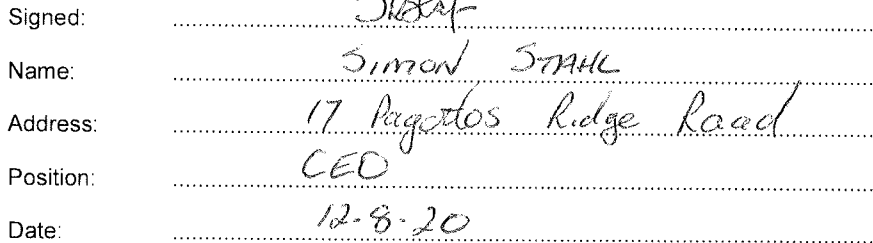 Signed:
Name: SIMON STAHL
Address: 17 Pagottos Ridge Road
Position: CEO
Date: 12-8-20